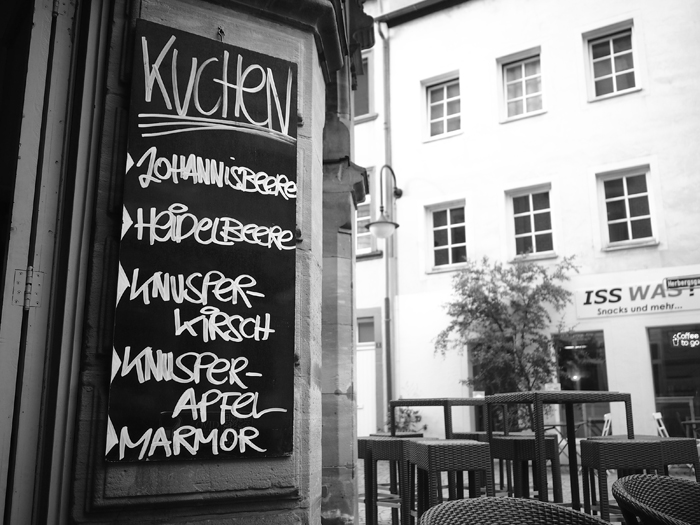 KUCHEN
JOHANNISBEERE
HEIDELBEERE
KNUSPER-
KIRSCH
KNUSPER-
APFEL
MARMOR
ISS WAS
Snacks und mehr...
Coffee
to go